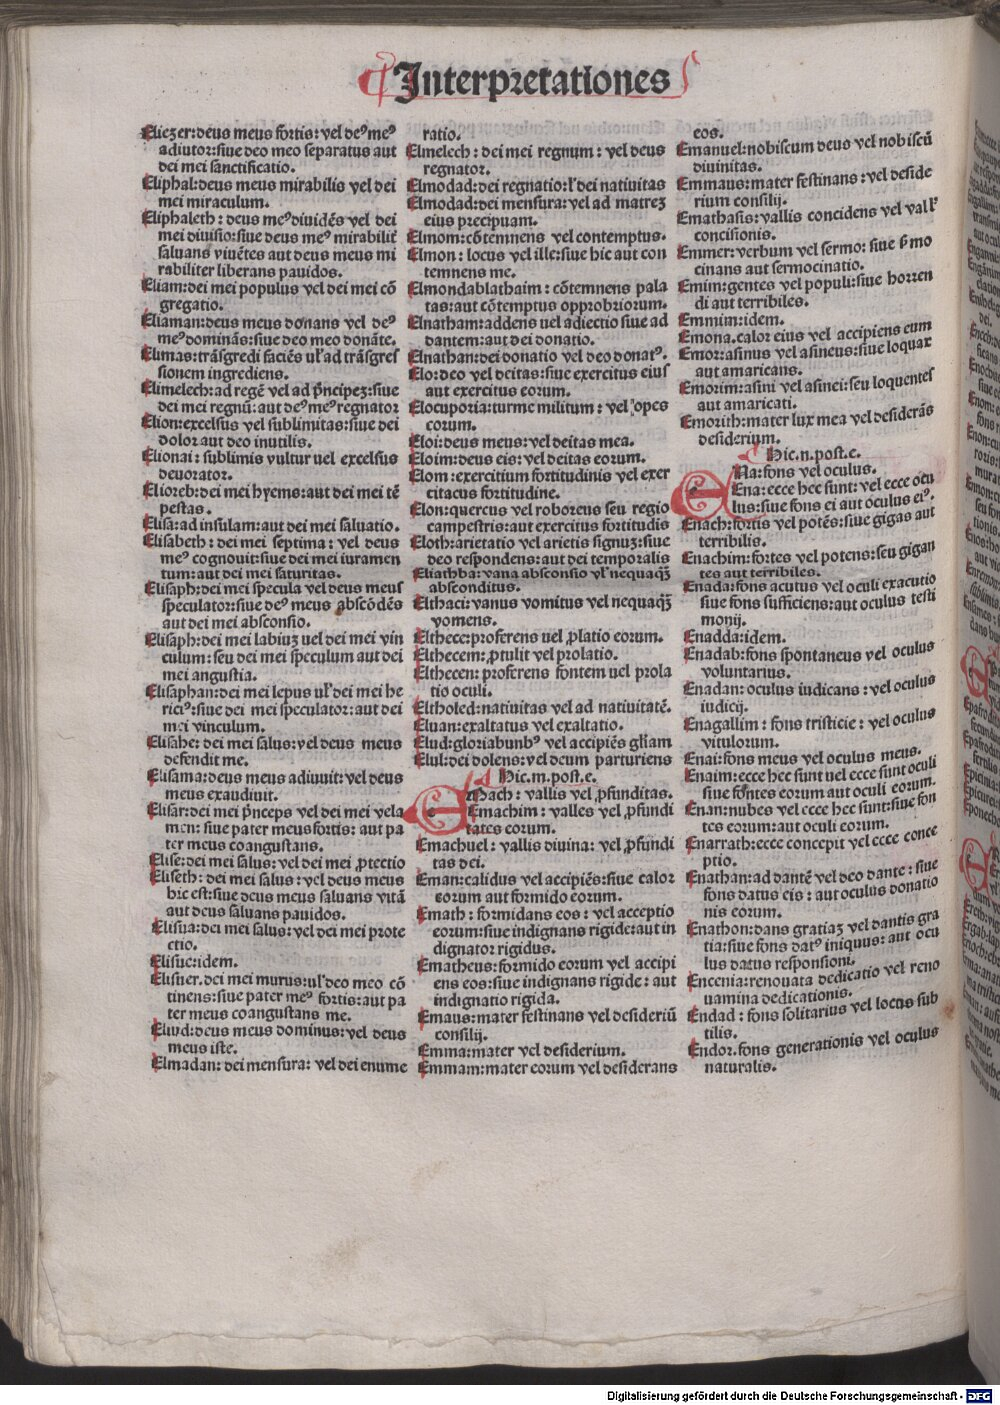 Interpretationes
Eliezer:deus meus fortis:vel deꝰ meꝰ
adiutor:siue deo meo separatus aut
dei mei sanctificatio.
Eliphal:deus meus mirabilis vel dei
mei miraculum.
Eliphaleth: deus meꝰ diuidēs vel dei
mei diuisio:siue deus meꝰ mirabilit̄
saluans viuētes aut deus meus mi
rabiliter liberans pauidos.
Eliam:dei mei populus vel dei mei cō
gregatio.
Eliaman:deus meus donans vel deꝰ
meꝰ dominās:siue deo meo donāte.
Elimas:trāsgredi faciēs ul̓ ad trāsgres
sionem ingrediens.
Elimelech:ad regē vel ad p̄ncipeꝫ:siue
dei mei regnū:aut deꝰ meꝰ regnator
Elion:excelsus vel sublimitas:siue dei
dolor aut deo inutilis.
Elionai: sublimis vultur uel excelsus
deuorator.
Elioreb:dei mei hyems:aut dei mei tē
pestas.
Elisa:ad insulam:aut dei mei saluatio.
Elisabeth: dei mei septima: vel deus
meꝰ cognouit:siue dei mei iuramen
tum:aut dei mei saturitas.
Elisaph:dei mei specula vel deus meus
speculator:siue deꝰ meus abscōdēs
aut dei mei absconsio.
Elisaph:dei mei labiuꝫ uel dei mei vin
culum:seu dei mei speculum aut dei
mei angustia.
Elisaphan:dei mei lepus ul̓ dei mei he
riciꝰ:siue dei mei speculator:aut dei
mei vinculum.
Elisahe: dei mei salus:vel deus meus
defendit me.
Elisama:deus meus adiuuit:vel deus
meus exaudiuit.
Elisar:dei mei p̄nceps vel dei mei vela
men: siue pater meus fortis: aut pa
ter meus coangustans.
Elise:dei mei salus:vel dei mei ꝓtectio
Eliseth: dei mei salus: vel deus meus
hic est:siue deus meus saluans vitā
aut deus saluans pauidos.
Elisua:dei mei salus:vel dei mei prote
ctio.
Elisue:idem.
Elisuer.dei mei murus:ul̓ deo meo cō
tinens:siue pater meꝰ fortis:aut pa
ter meus coangustans me.
Eliud:deus meus dominus:vel deus
meus iste.
Elmadan:dei mensura: vel dei enume
ratio.
Elmelech: dei mei regnum: vel deus
regnator.
Elmodad:dei regnatio:l̓ dei natiuitas
Elmodad:dei mensura:vel ad matreꝫ
eius precipuam.
Elmom:cōtemnens vel contemptus.
Elmon: locus vel ille:siue hic aut con
temnens me.
Elmondablathaim: cōtemnens pala
tas:aut cōtemptus opprobriorum.
Elnatham:addens uel adiectio siue ad
dantem:aut dei donatio.
Elnathan:dei donatio vel deo donatꝰ.
Elo:deo vel deitas:siue exercitus eius
aut exercitus eorum.
Elocuporia:turme militum: vel opes
eorum.
Eloi:deus meus:vel deitas mea.
Eloim:deus eis:vel deitas eorum.
Elom:exercitium fortitudinis vel exer
citacus fortitudine.
Elon:quercus vel roboreus seu regio
campestris:aut exercitus fortitudis
Eloth:arietatio vel arietis signuꝫ:siue
deo respondens:aut dei temporalis
Eliathba:vana absconsio vl̓ nequaqꝫ
absconditus.
Elthaci:vanus vomitus vel nequaqꝫ
vomens.
Elthece:proferens uel ꝓlatio eorum.
Elthecem:ꝓtulit vel prolatio.
Elthecen:proferens fontem uel prola
tio oculi.
Eltholed:natiuitas vel ad natiuitatē.
Eluan:exaltatus vel exaltatio.
Elud:gloriabundꝰ vel accipiēs gl̄iam
Elul:dei dolens:vel deum parturiens
Hic.m.post.e.
EMach: vallis vel ꝓfunditas.
Emachim: valles vel ꝓfundi
tates eorum.
Emachuel: vallis diuina: vel ꝓfundi
tas dei.
Eman:calidus vel accipiēs:siue calor
eorum aut formido eorum.
Emath: formidans eos: vel acceptio
eorum:siue indignans rigide:aut in
dignator rigidus.
Ematheus:formido eorum vel accipi
ens eos:siue indignans rigide: aut
indignatio rigida.
Emaus:mater festinans vel desideriū
consilij.
Emma:mater vel desiderium.
Emmam:mater eorum vel desiderans
eos.
Emanuel:nobiscum deus vel nobiscū
diuinitas.
Emmaus:mater festinans:vel deside
rium consilij.
Emathasis:vallis concidens vel vall̓
concisionis.
Emmer:verbum vel sermo: siue p̄mo
cinans aut sermocinatio.
Emim:gentes vel populi:siue horren
di aut terribiles.
Emmim:idem.
Emona.calor eius vel accipiens eum
Emor:asinus vel asineus:siue loquax
aut amaricans.
Emorim:asini vel asinei:seu loquentes
aut amaricati.
Emorith:mater lux mea vel desiderās
desiderium.
Hic.n.post.e.
ENa:fons vel oculus.
Ena:ecce hec sunt: vel ecce ocu
lus:siue fons ei aut oculus eiꝰ.
Enach:fortis vel potēs:siue gigas aut
terribilis.
Enachim:fortes vel potens:seu gigan
tes aut terribiles.
Enada:fons acutus vel oculi exacutio
siue fons sufficiens:aut oculus testi
monij.
Enadda:idem.
Enadab:fons spontaneus vel oculus
voluntarius.
Enadan: oculus iudicans: vel oculus
iudicij.
Enagallim: fons tristicie: vel oculus
vitulorum.
Enai:fons meus vel oculus meus.
Enaim:ecce hec sunt uel ecce sunt oculi
siue fontes eorum aut oculi eorum.
Enan:nubes vel ecce hec sunt:siue fon
tes eorum:aut oculi eorum.
Enarrath:ecce concepit vel ecce conce
ptio.
Enathan:ad dantē vel deo dante: siue
fons datus eis: aut oculus donatio
nis eorum.
Enathon:dans gratiaꝫ vel dantis gra
tia:siue fons datꝰ iniquus: aut ocu
lus datus responsioni.
Encenia:renouata dedicatio vel reno
uamina dedicationis.
Endad: fons solitarius vel locus sub
tilis.
Endor.fons generationis vel oculus
naturalis.
Digitalisierung gefördert durch die Deutsche Forschungsgemeinschaft - DFG